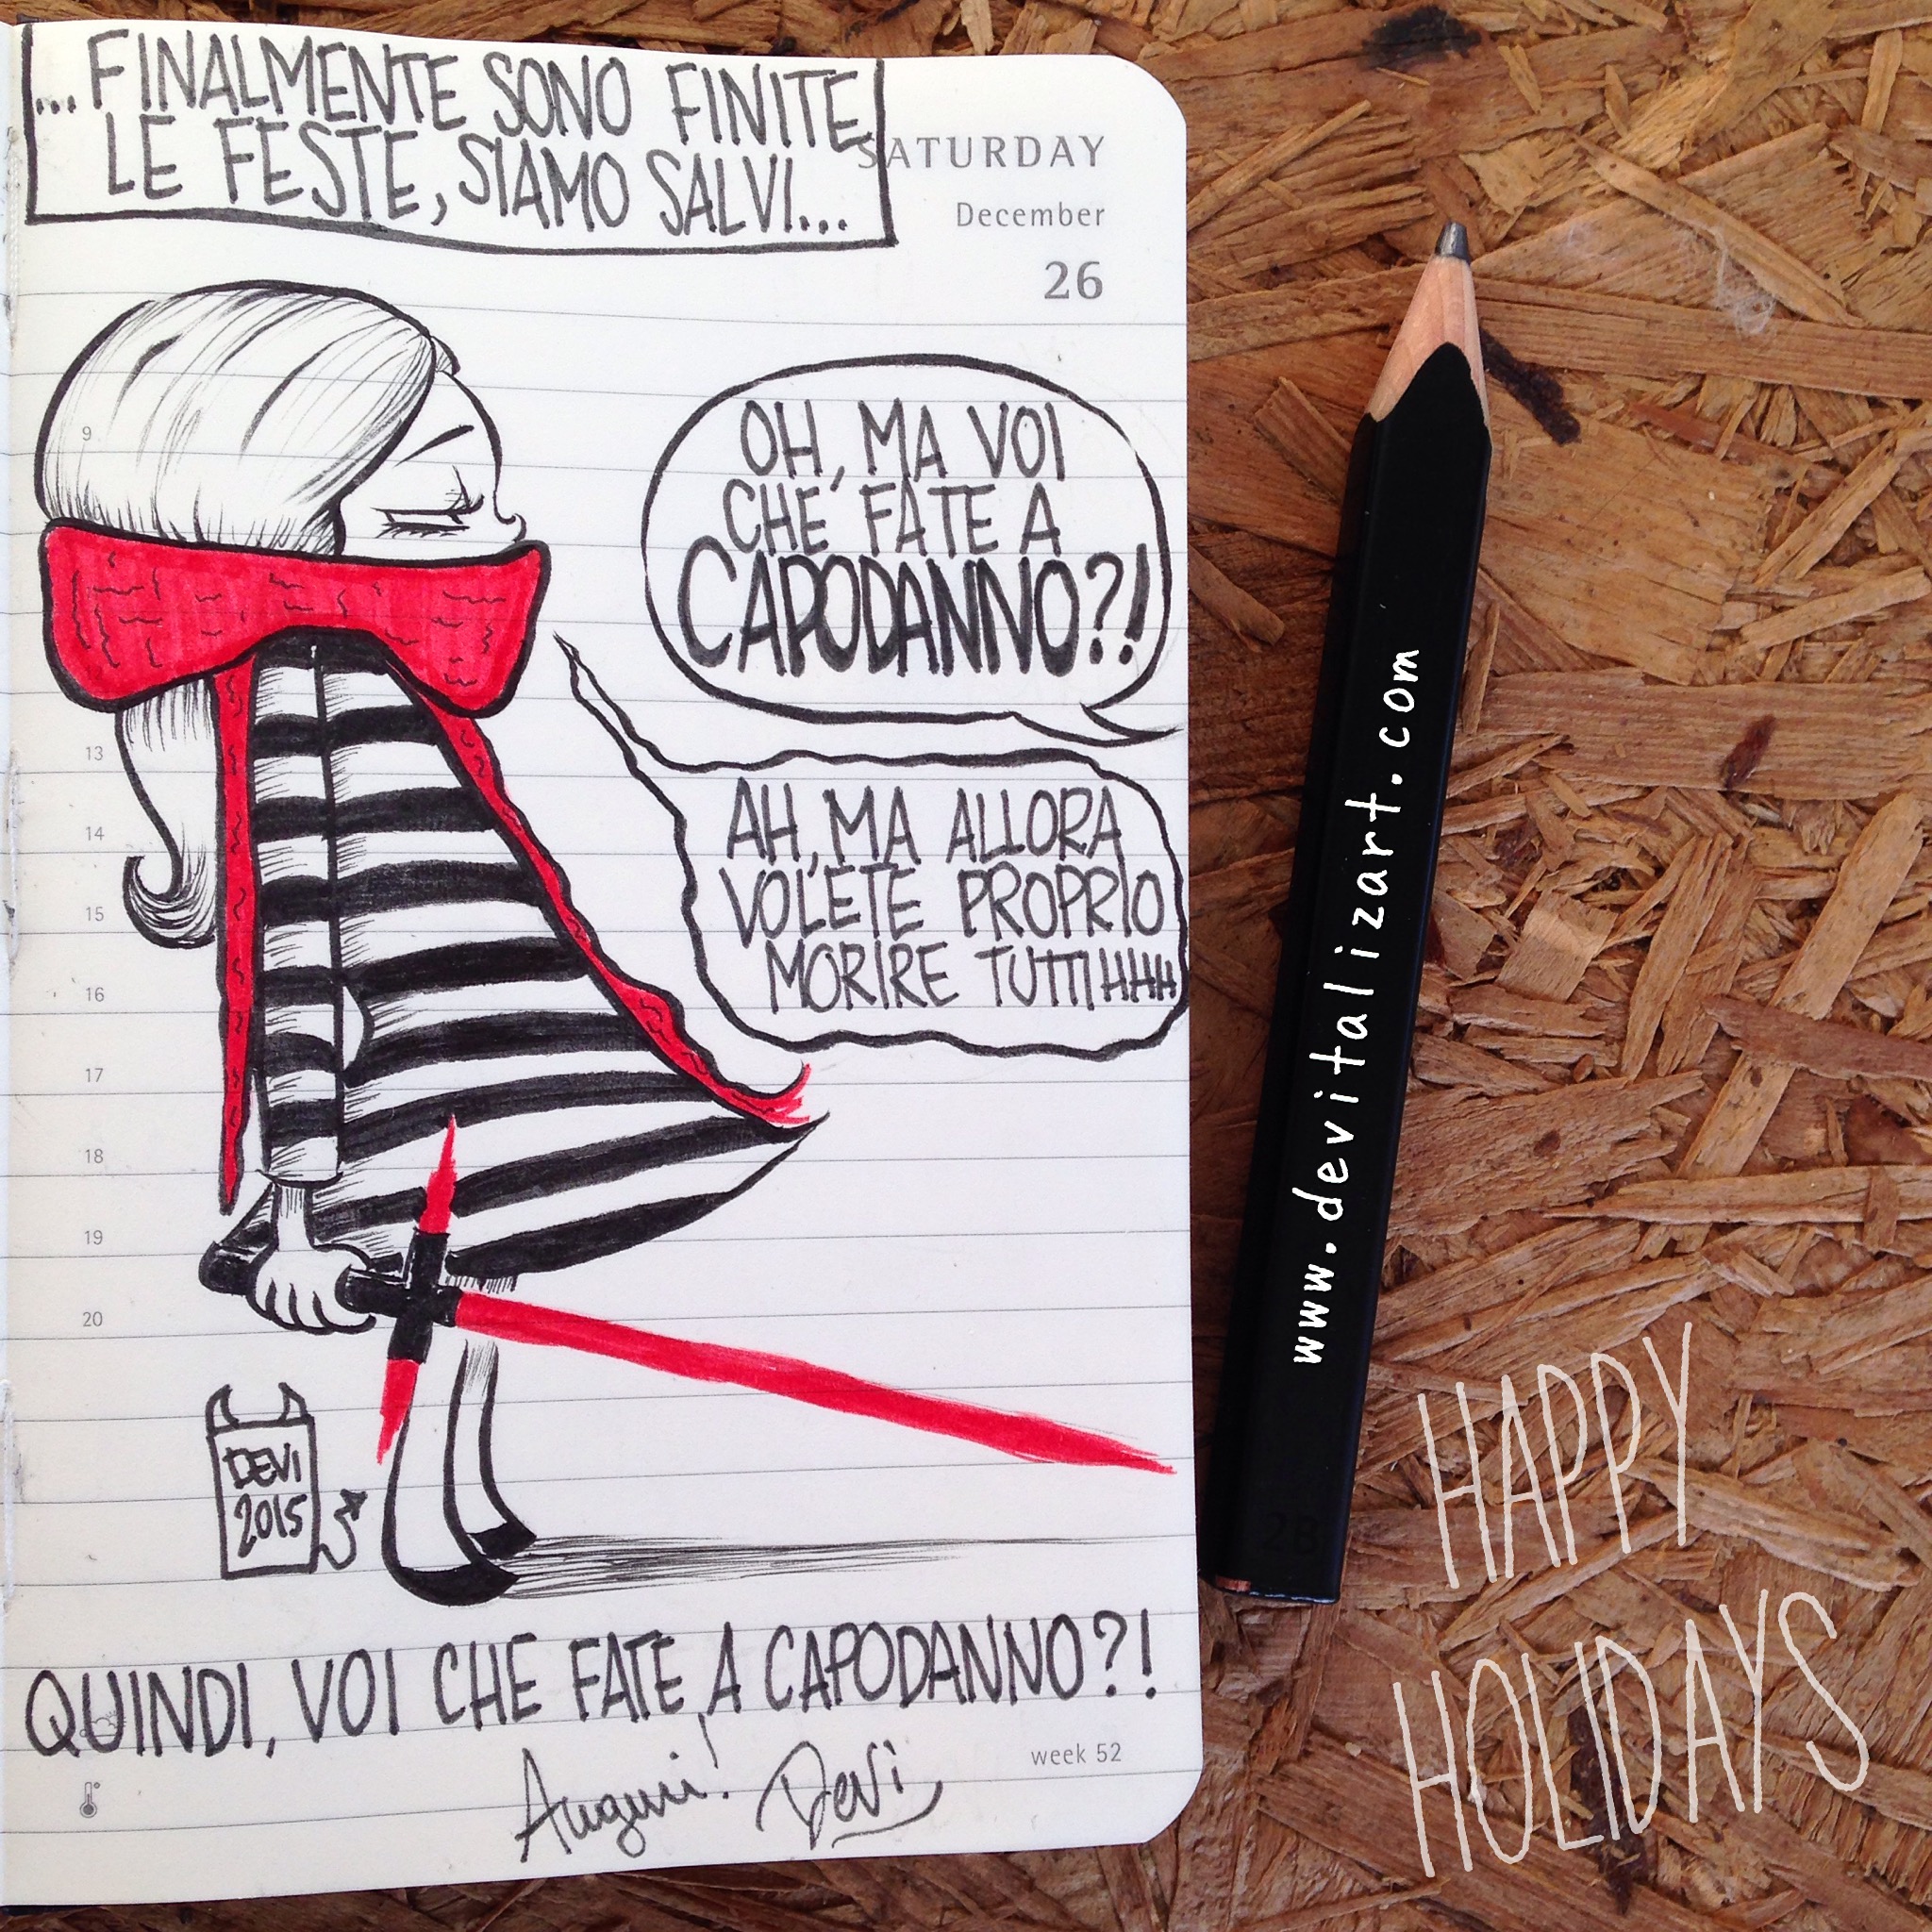 ...FINALMENTE SONO FINITE
LE FESTE, SIAMO SALVI...
SATURDAY
December
26
OH, MA VOI
CHE FATE A
CAPODANNO?!
AH, MA ALLORA
VOLETE PROPRIO
MORIRE TUTTIHHH
9
13
14
15
16
17
18
19
20
DEVI
2015
QUINDI, VOI CHE FATE A CAPODANNO?!
week 52
Auguri! Devi
www.devitalizart.com
2B
HAPPY
HOLIDAYS